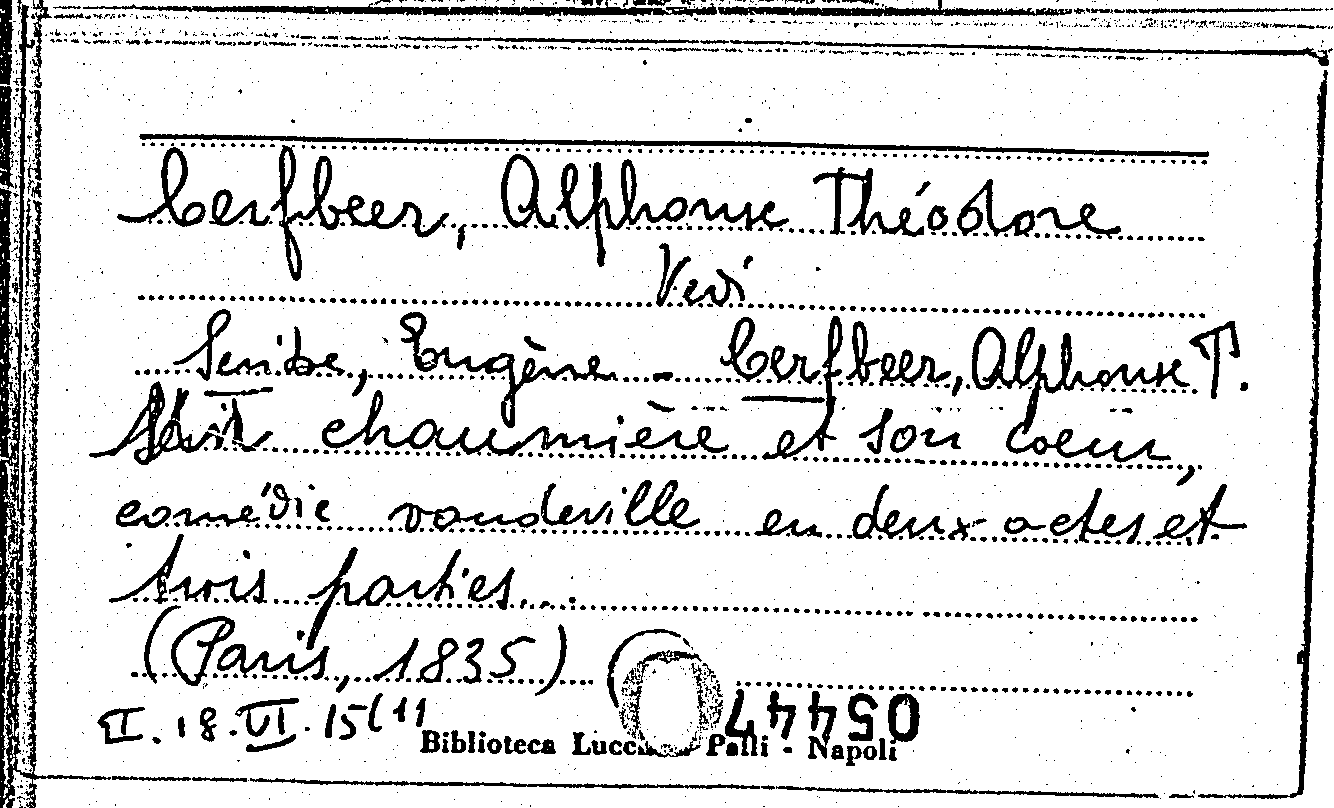 Cerfbeer, Alphonse Théodore
Vedi
Scribe, Eugène - Cerfbeer, Alphonse T.
chaumière et son coeur,
comédie vaudeville en deux actes et
trois parties...
(Paris, 1835)
II. 18. VI. 15(11
05447
Biblioteca Palli - Napoli